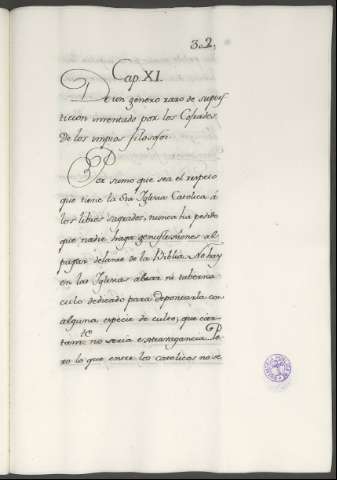 32,
Cap. XI.
De un género raro de supers
ticion inventado por los Cofrades
De los impios filosofos.
Por sumo que sea el respeto
que tiene la Sta Iglesia Catolica á
los libros sagrados, nunca ha pedido
que nadie haga genuflexiones al
pasar delante de la Biblia. No hay
en las Iglesias altar ni taberna
culo dedicado para depositarla con
alguna especie de culto, que cier
tamte no seria extravagancia. Pe
ro lo que entre los catolicos no se